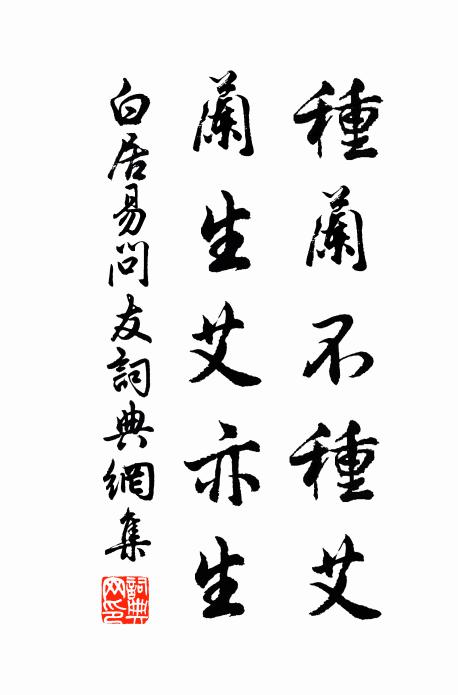 種蘭不種艾
蘭生艾亦生
白居易問友詞典網集
詞典
网印